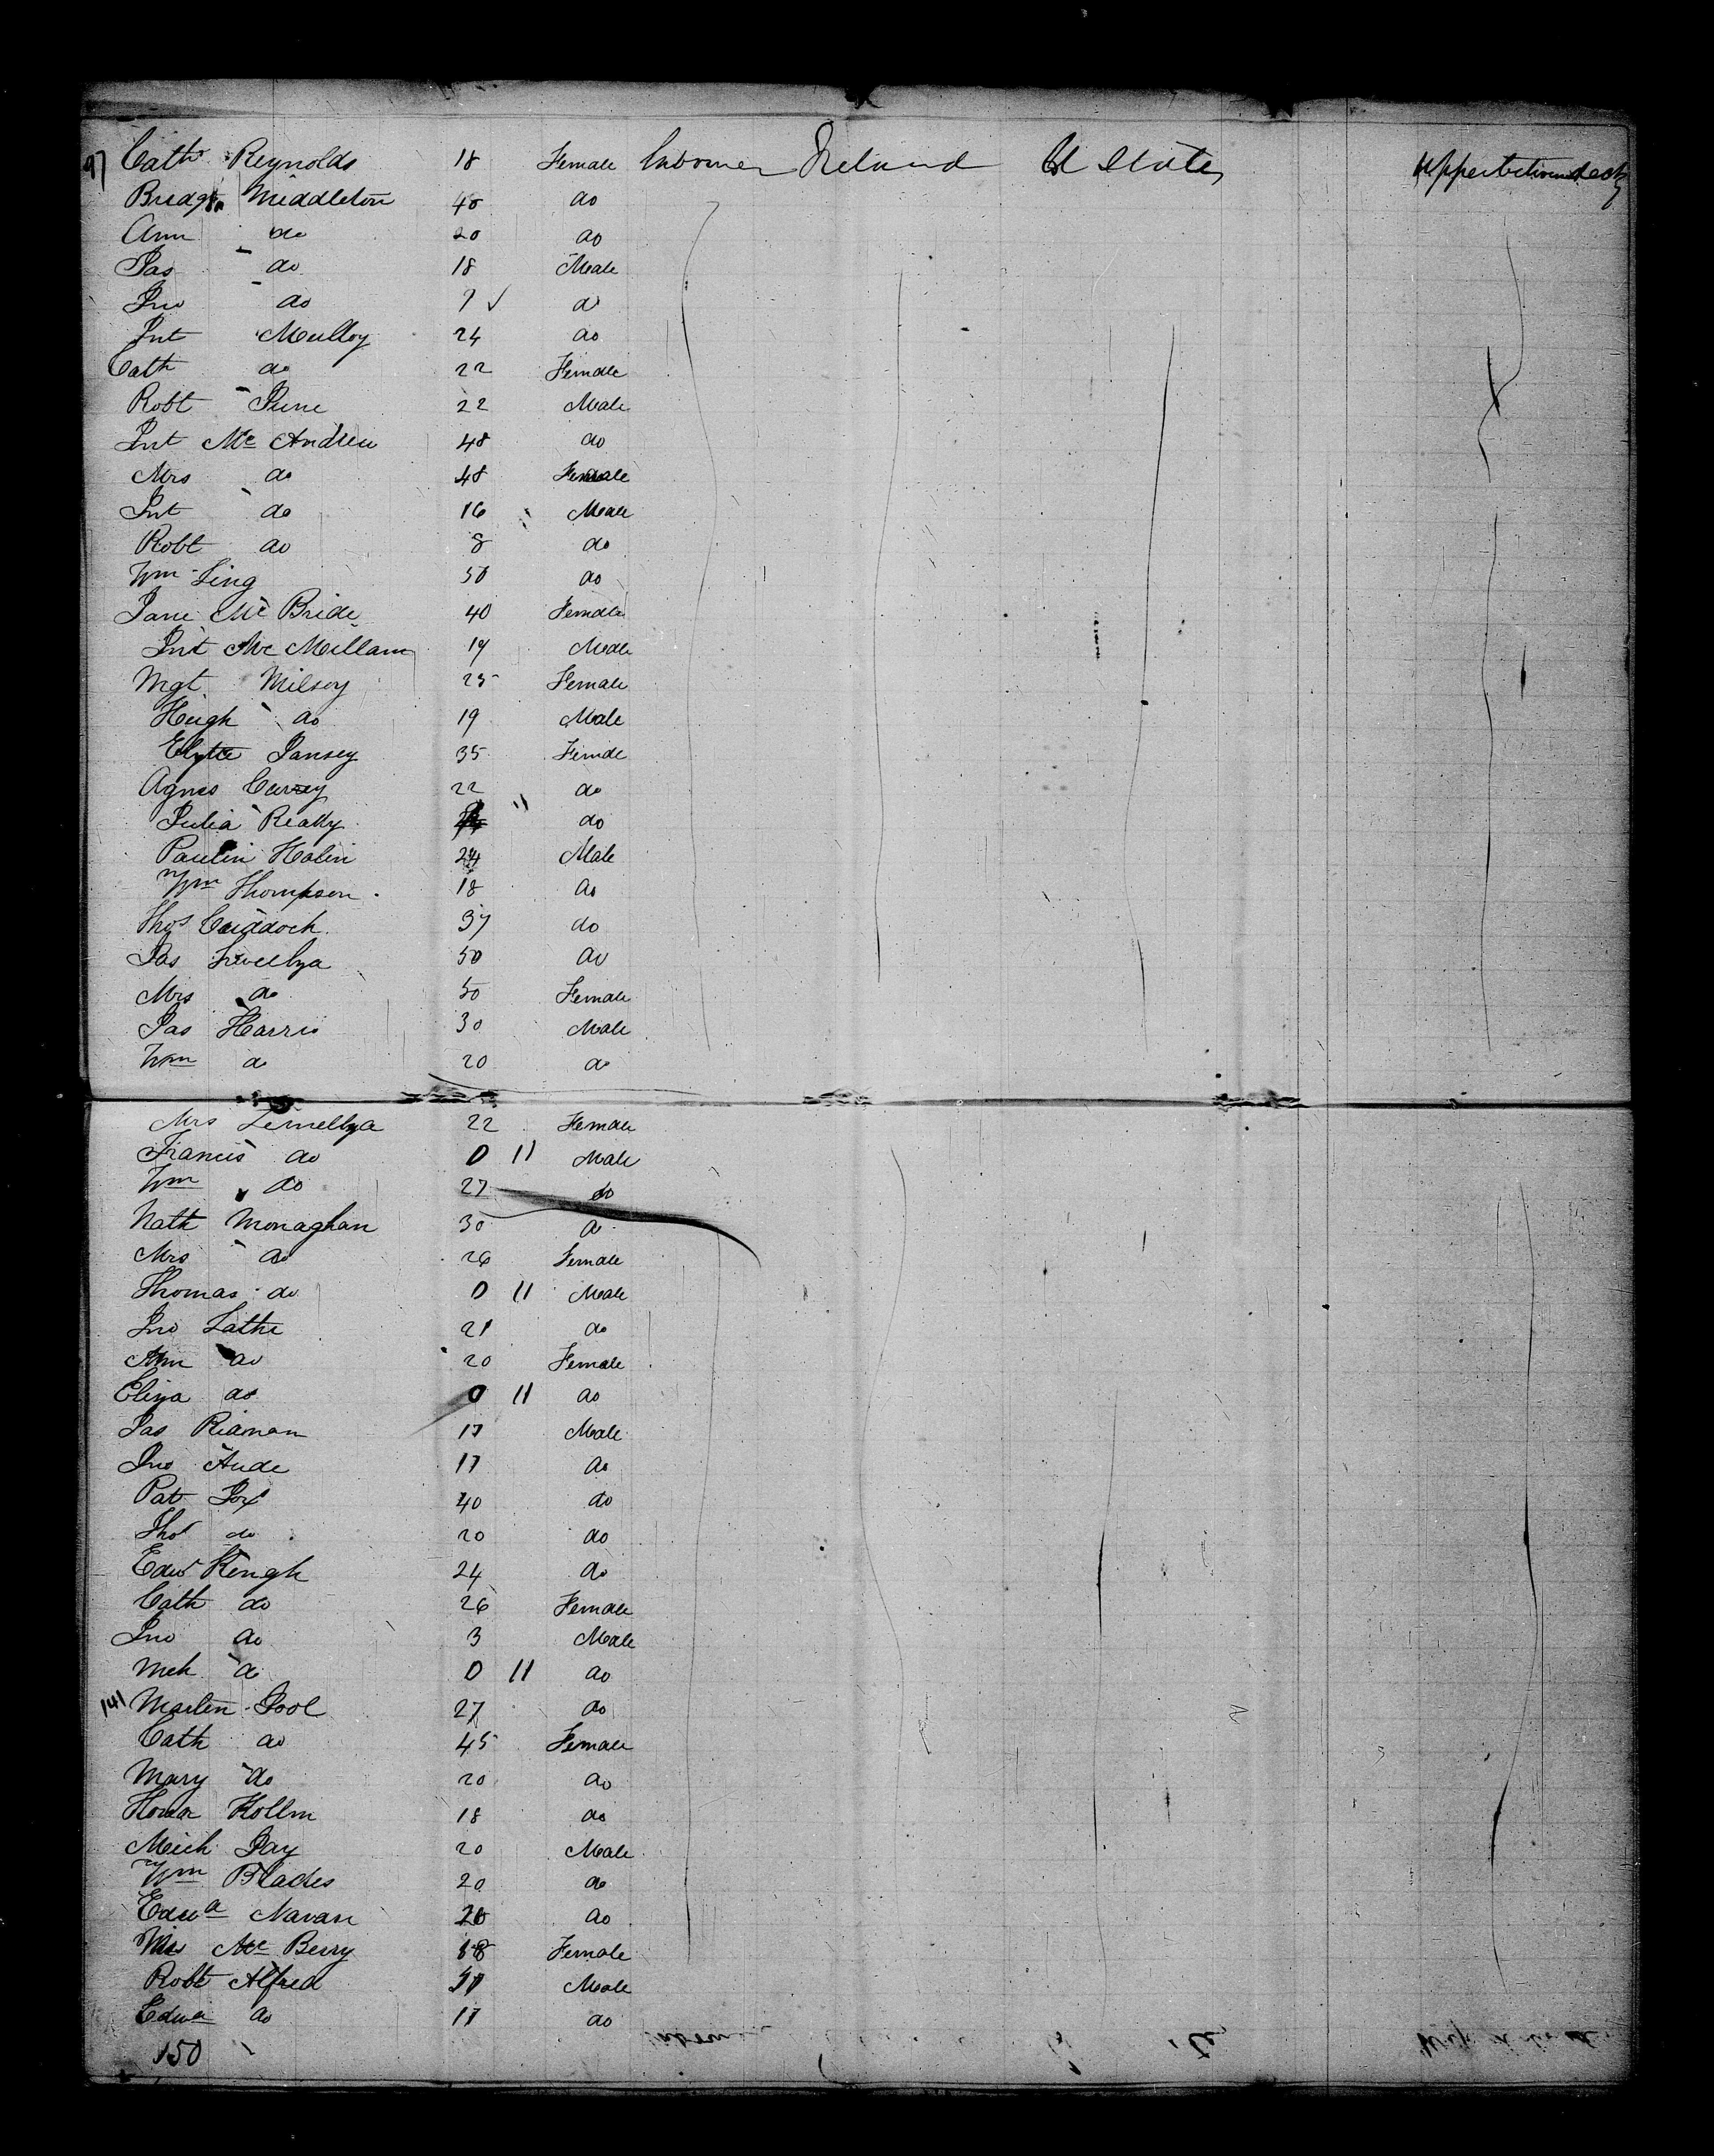 97 Cath Reynolds 18 Female Labourer Ireland U States Upper between decks
Bridgt Middleton 48 do
Ann do 20 do
Jas do 18 Male
Jno do 9 ✓ do
Jnt Mulloy 24 do
Cath do 22 Female
Robt June 22 Male
Jnt Mc Andrew 48 do
Mrs do 48 Female
Jnt do 16 Male
Robt do 8 do
Wm Ling 50 do
Jane Mc Bride 40 Female
Jnt Mc Mellam 19 Male
Mgt Milsey 25 Female
Hugh do 19 Male
Jansey 35 Female
Agnes Currey 22 do
Julia Reatty 11 do
Paulin Halin 24 Male
Wm Thompson 18 do
Thos Craddock 37 do
Jas 50 do
Mrs do 50 Female
Jas Harris 30 Male
Wm do 20 do
Mrs 22 Female
Francis do 0 11 Male
Wm do 27 do
Nath Monaghan 30 do
Mrs do 26 Female
Thomas do 0 11 Male
Jno Lathe 21 do
Ann do 20 Female
Eliza do 0 11 do
Jas Riaman 17 Male
Jno Aude 17 do
Pat Fox 40 do
Tho do 20 do
Edwd Keugh 24 do
Cath do 26 Female
Jno do 3 Male
Mch do 0 11 do
141 Martin Pool 27 do
Cath do 45 Female
Mary do 20 do
Honor Hollm 18 do
Mich Jay 20 Male
Wm Blades 20 do
Edwd Navan 20 do
Mrs Mc Berry 18 Female
Robt Alfred Male
Edwd do 17 do
150